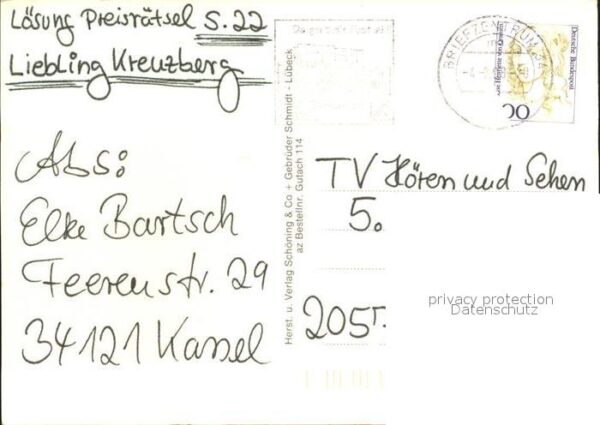 Lösung Preisrätsel S. 22
Liebling Kreuzberg
Abs:
Elke Bartsch
Feerenstr. 29
34121 Kassel
Herst. u. Verlag Schöning & Co + Gebrüder Schmidt - Lübeck
az Bestellnr. Gutach 114
BRIEFZENTRUM
Deutsche Bundespost
TV Hören und Sehen
5.
205
privacy protection
Datenschutz